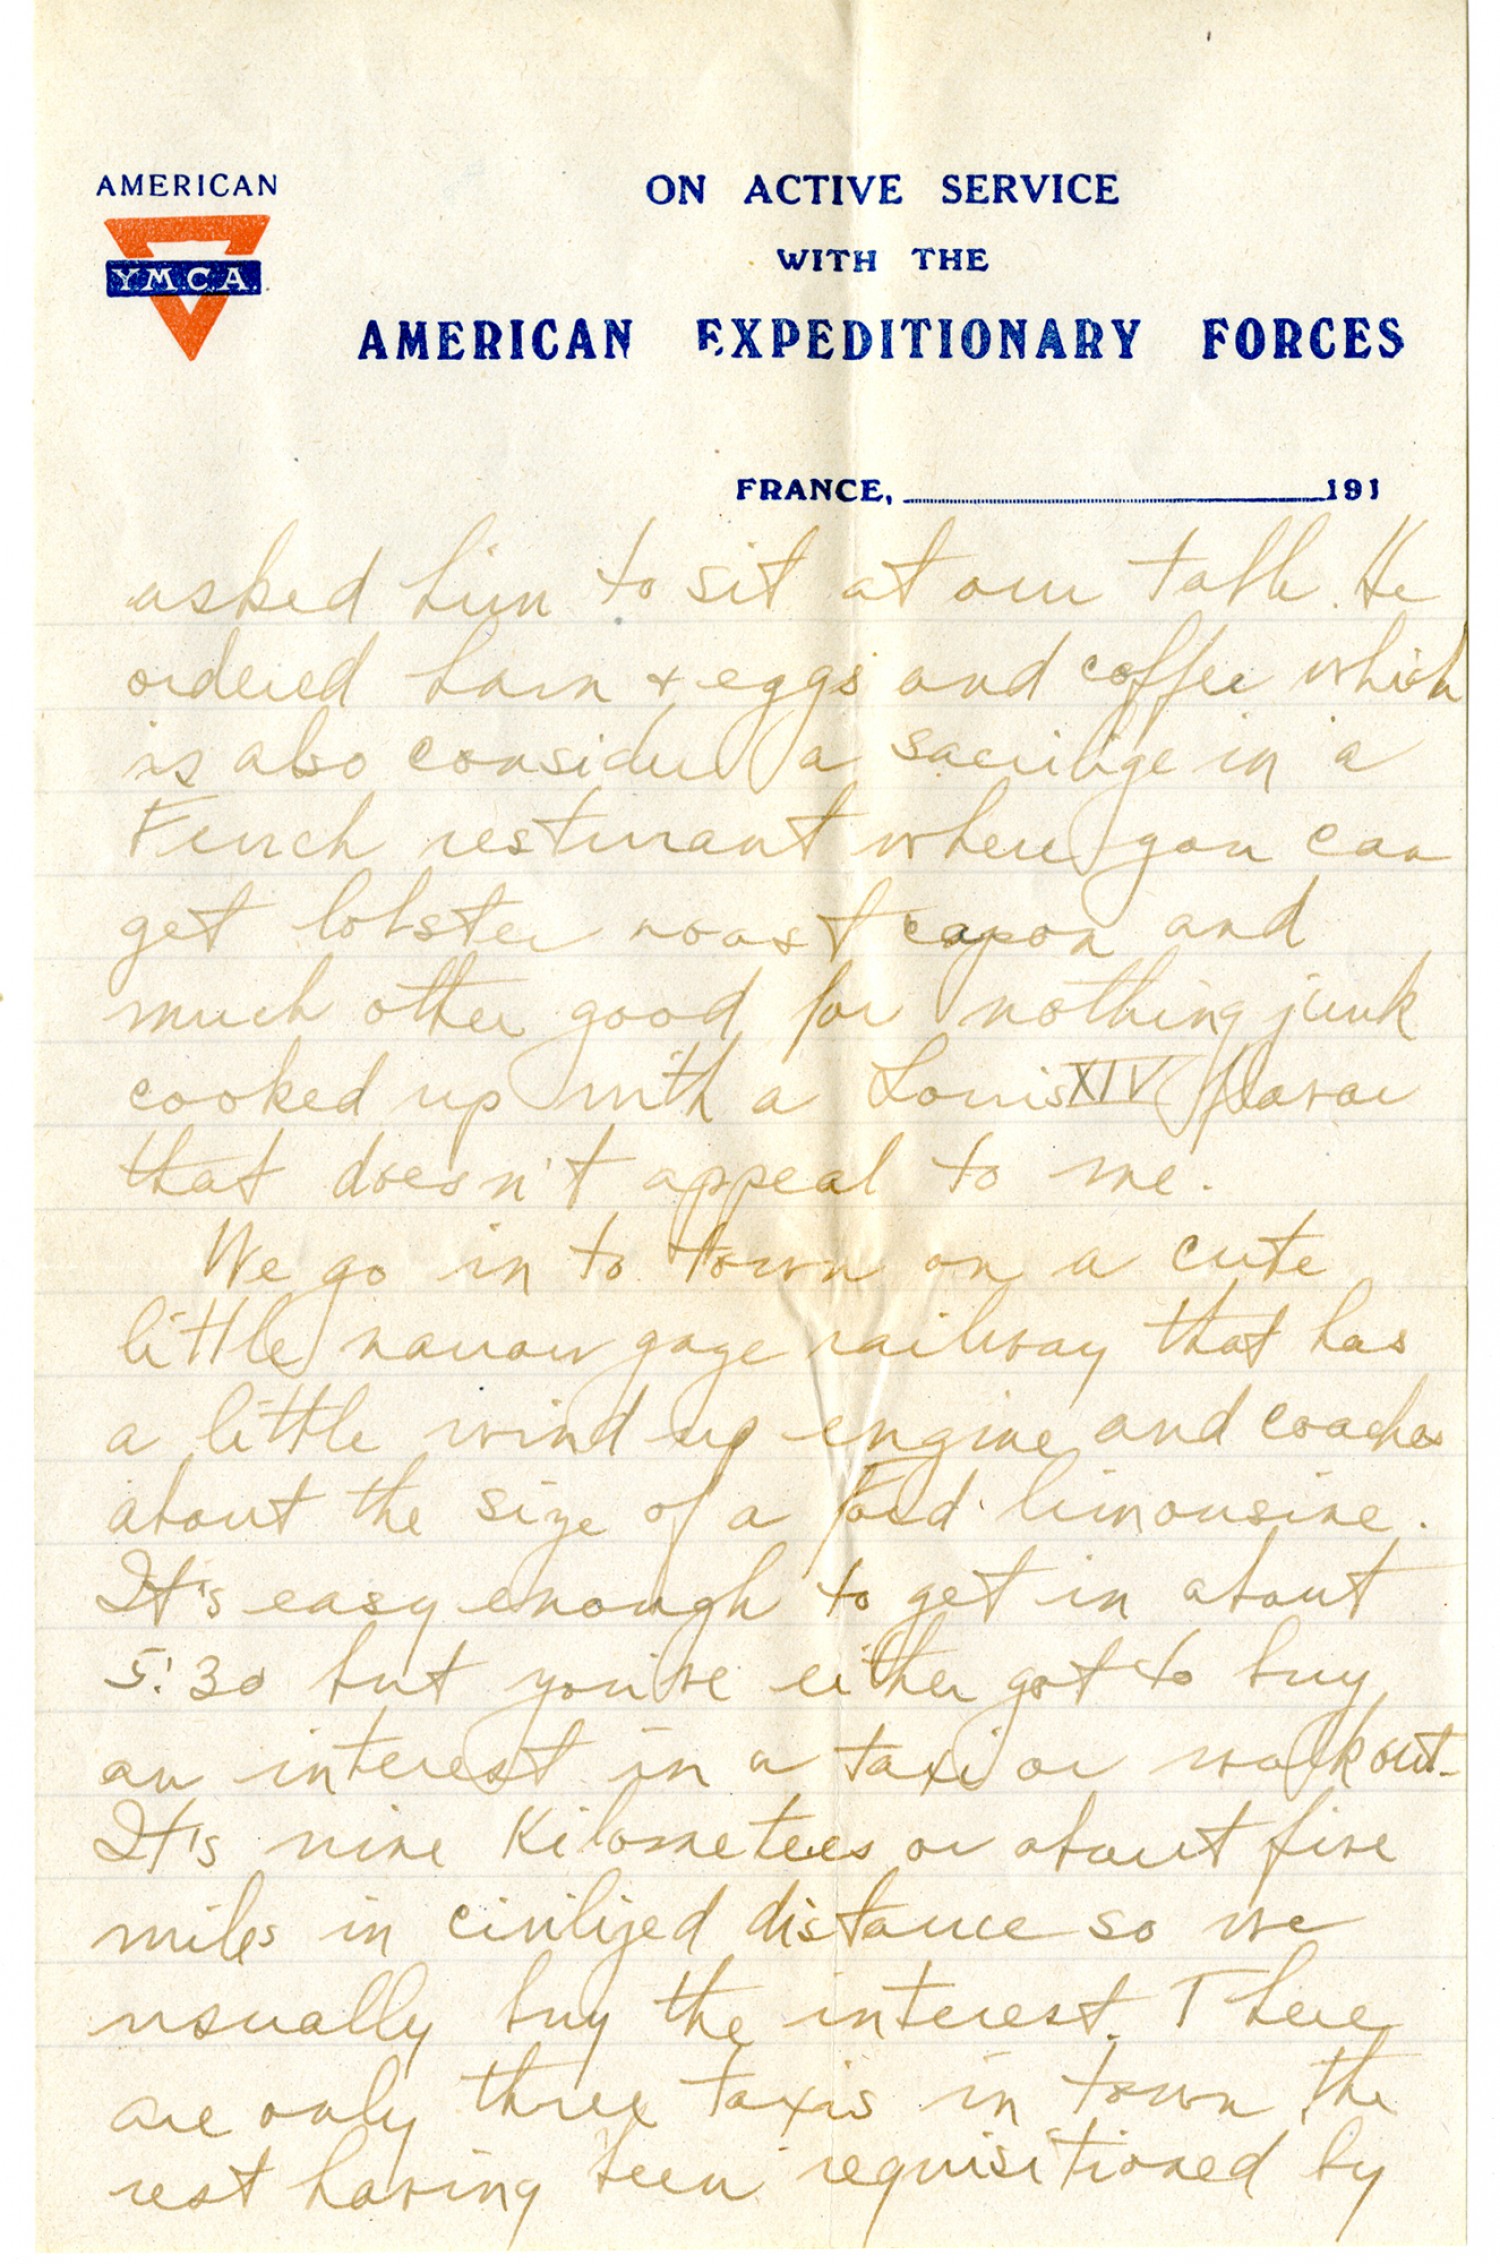 AMERICAN
Y.M.C.A.
ON ACTIVE SERVICE
WITH THE
AMERICAN EXPEDITIONARY FORCES
FRANCE, 191
asked him to sit at our table. He
ordered ham + eggs and coffee which
is also considered a sacrilige in a
French resturant where you can
get lobster roast capon and
much other good for nothing junk
cooked up with a Louis XIV flavor
that doesn't appeal to me.
We go in to town on a cute
little narrow gage railway that has
a little wind up engine and coaches
about the size of a Ford limousine.
It's easy enough to get in about
5:30 but you've either got to buy
an interest in a taxi or walk out.
It's nine Kilometers or about five
miles in civilized distance so we
usually buy the interest. There
are only three taxis in town, the
rest having been requisitioned by